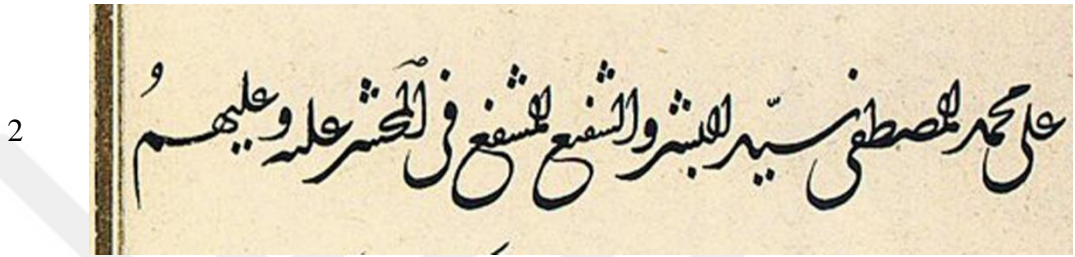 2
على محمد المصطفى سيّد البشر والشفيع المشفع فى المحشر عليه وعليهم
و